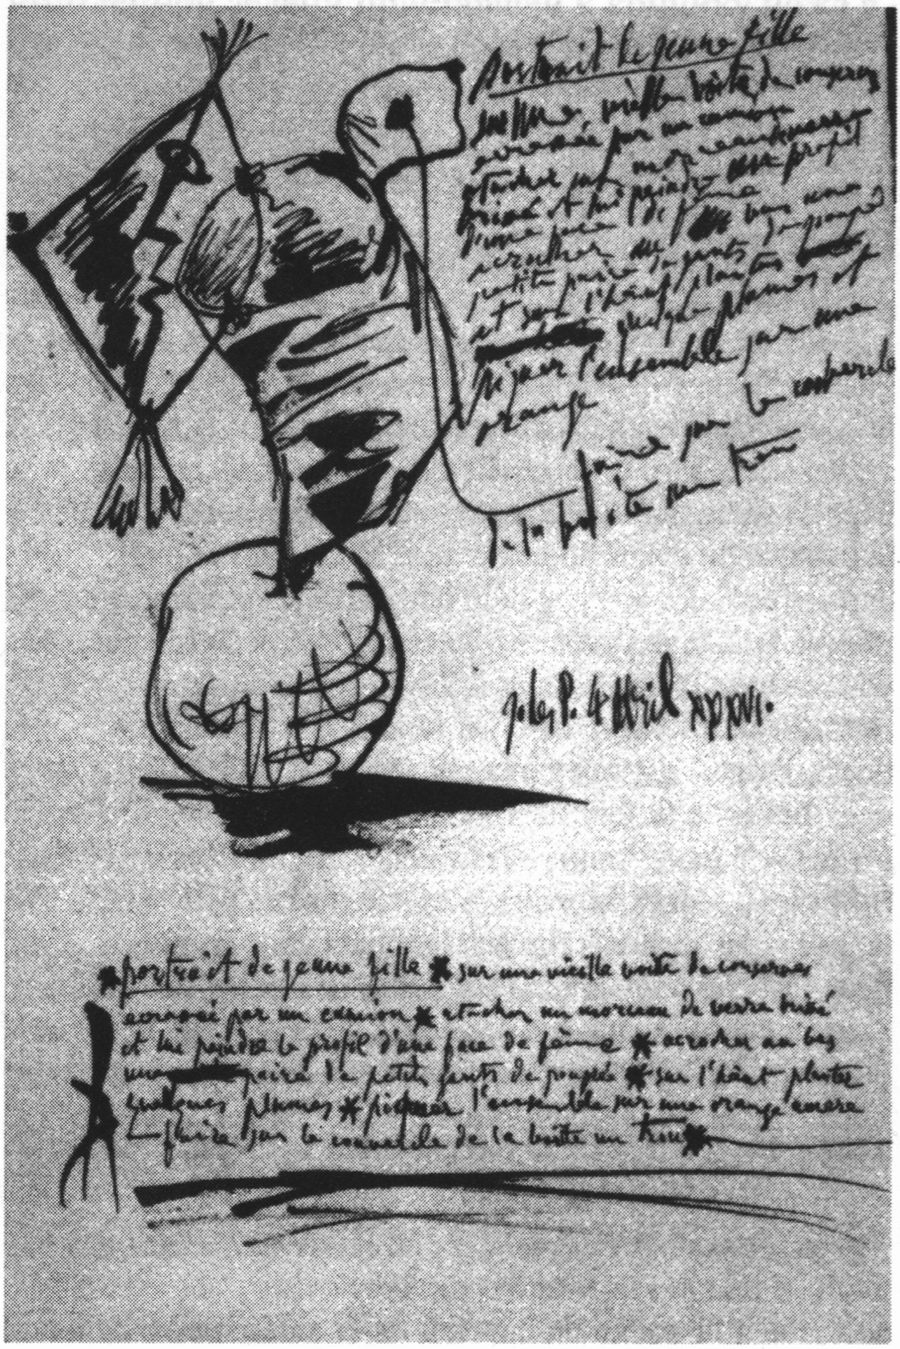 portrait de jeune fille
sur une vieille boîte de conserves
écrasée par un camion
atacher un morceau de verre
brisé et lui peindre le profil
d'une face de fème
acrocher au bas une
petite paire de gants de poupée
et sur l'hâut plantes
quelques plumes et
piquer l'ensemble sur une
orange
faire sur le couvercle
de la boîte un trou
4 Avril XXXVI.
*portrait de jeune fille * sur une vieille boîte de conserves
écrasée par un camion * atacher un morceau de verre brisé
et lui peindre le profil d'une face de fème * acrocher au bas
une paire de petits gants de poupée * sur l'hâut plantes
quelques plumes * piquer l'ensemble sur une orange
faire sur le couvercle de la boîte un trou *